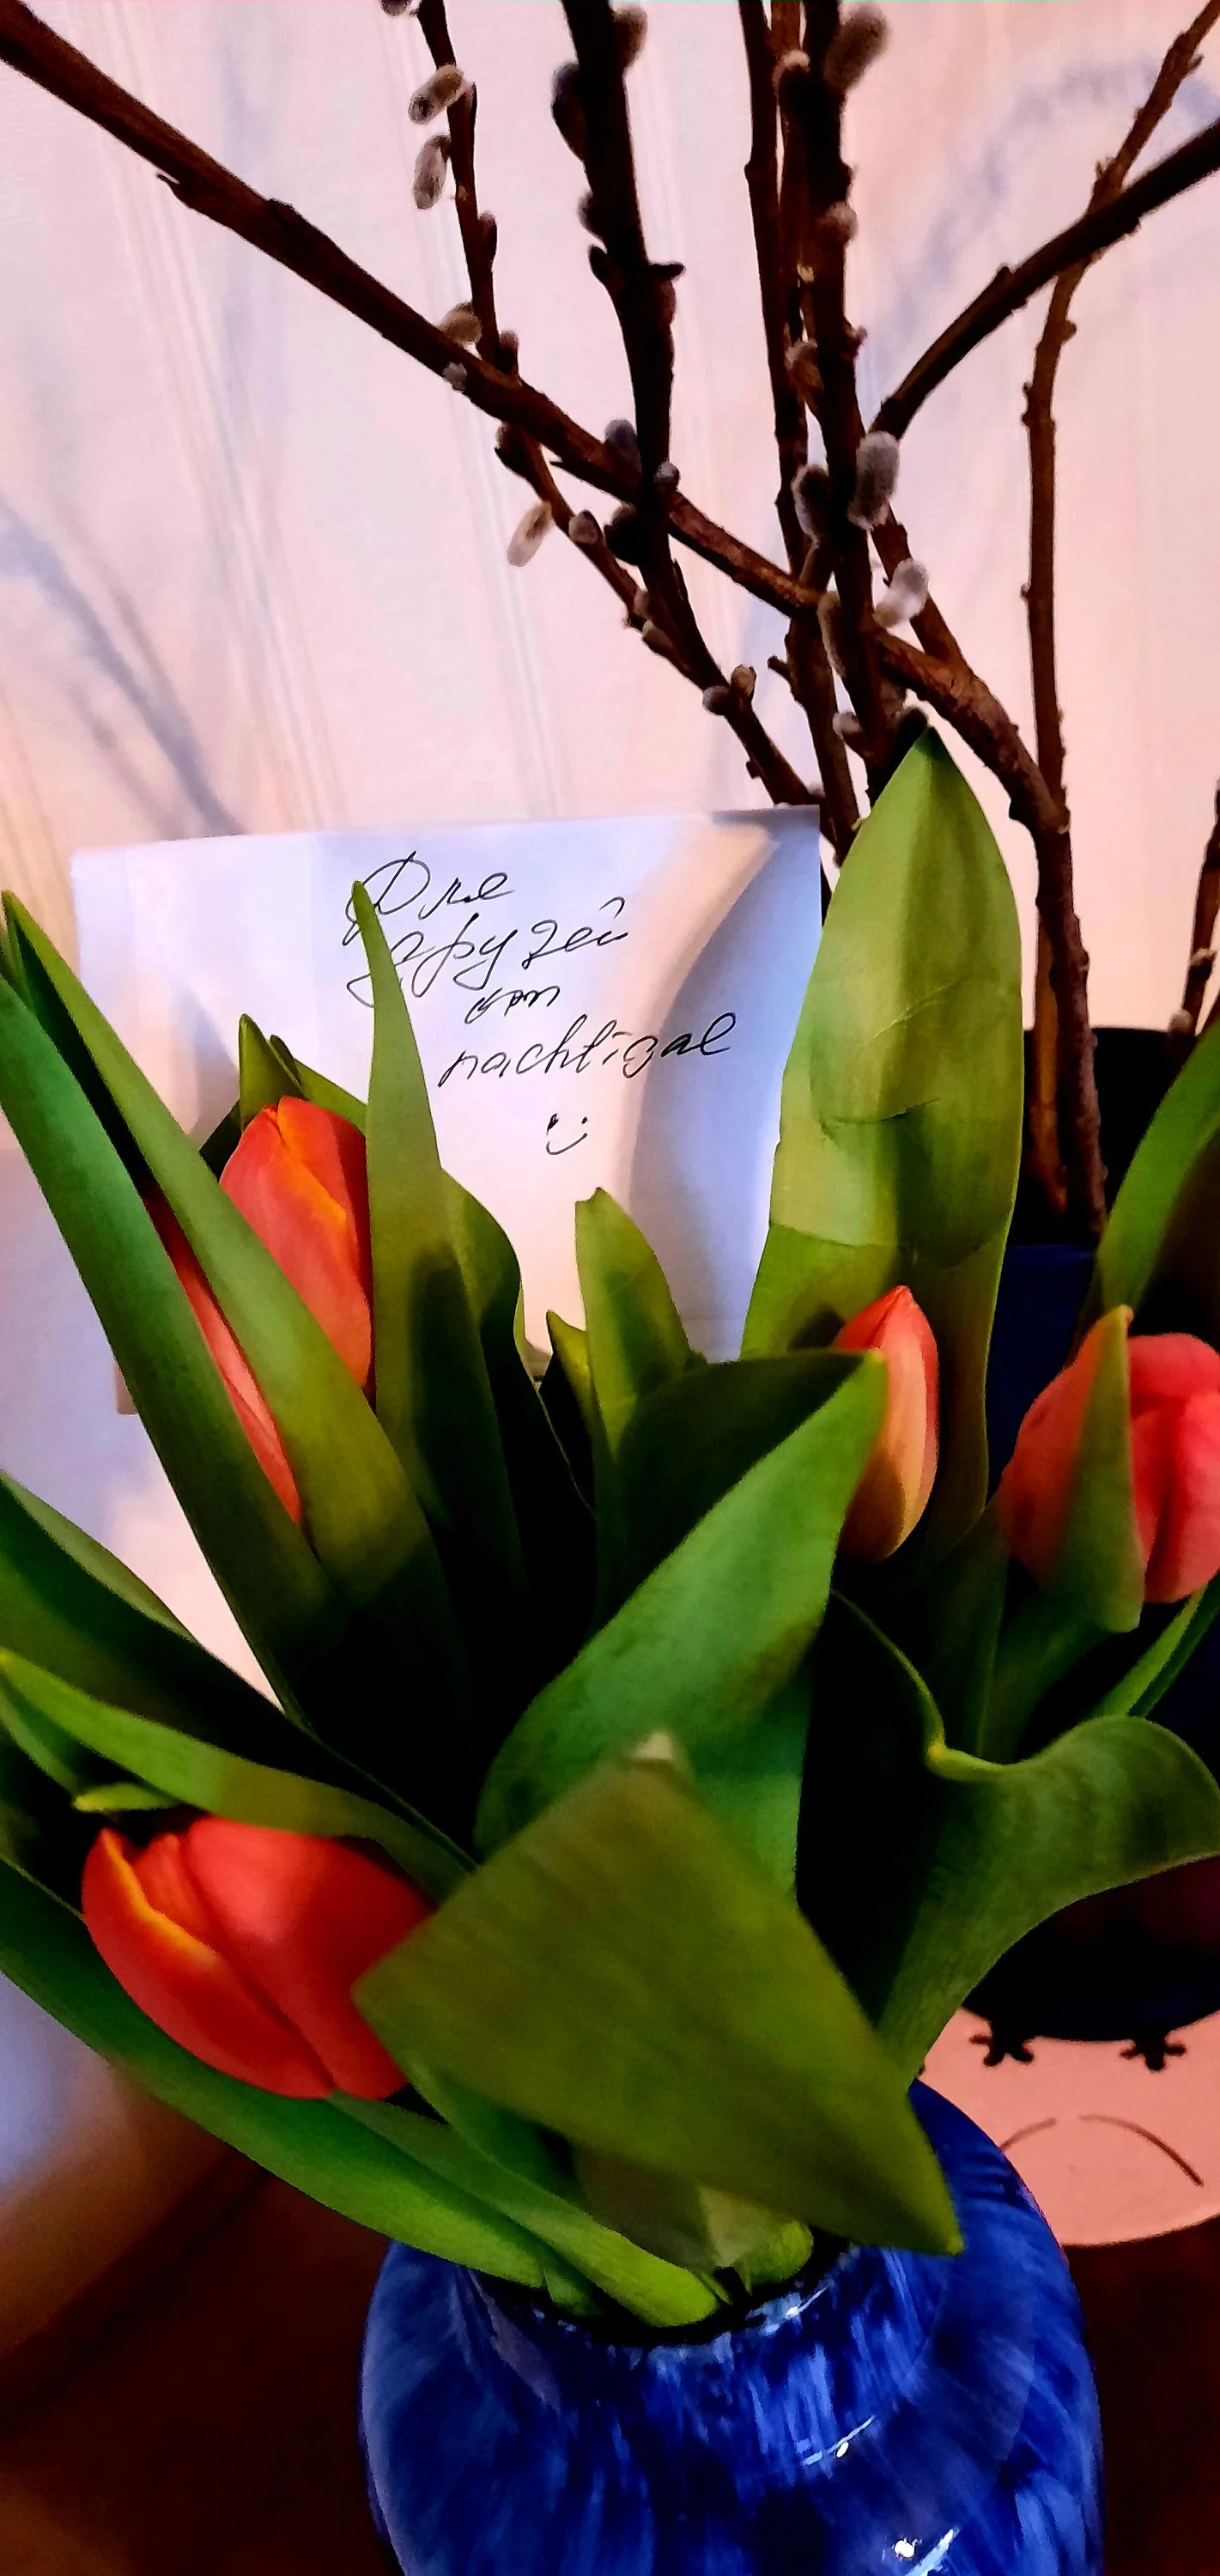 Для
друзей
от
nachtigal